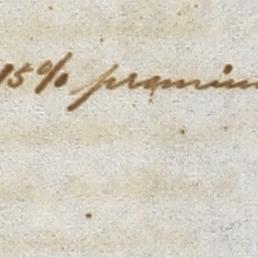 15% premium